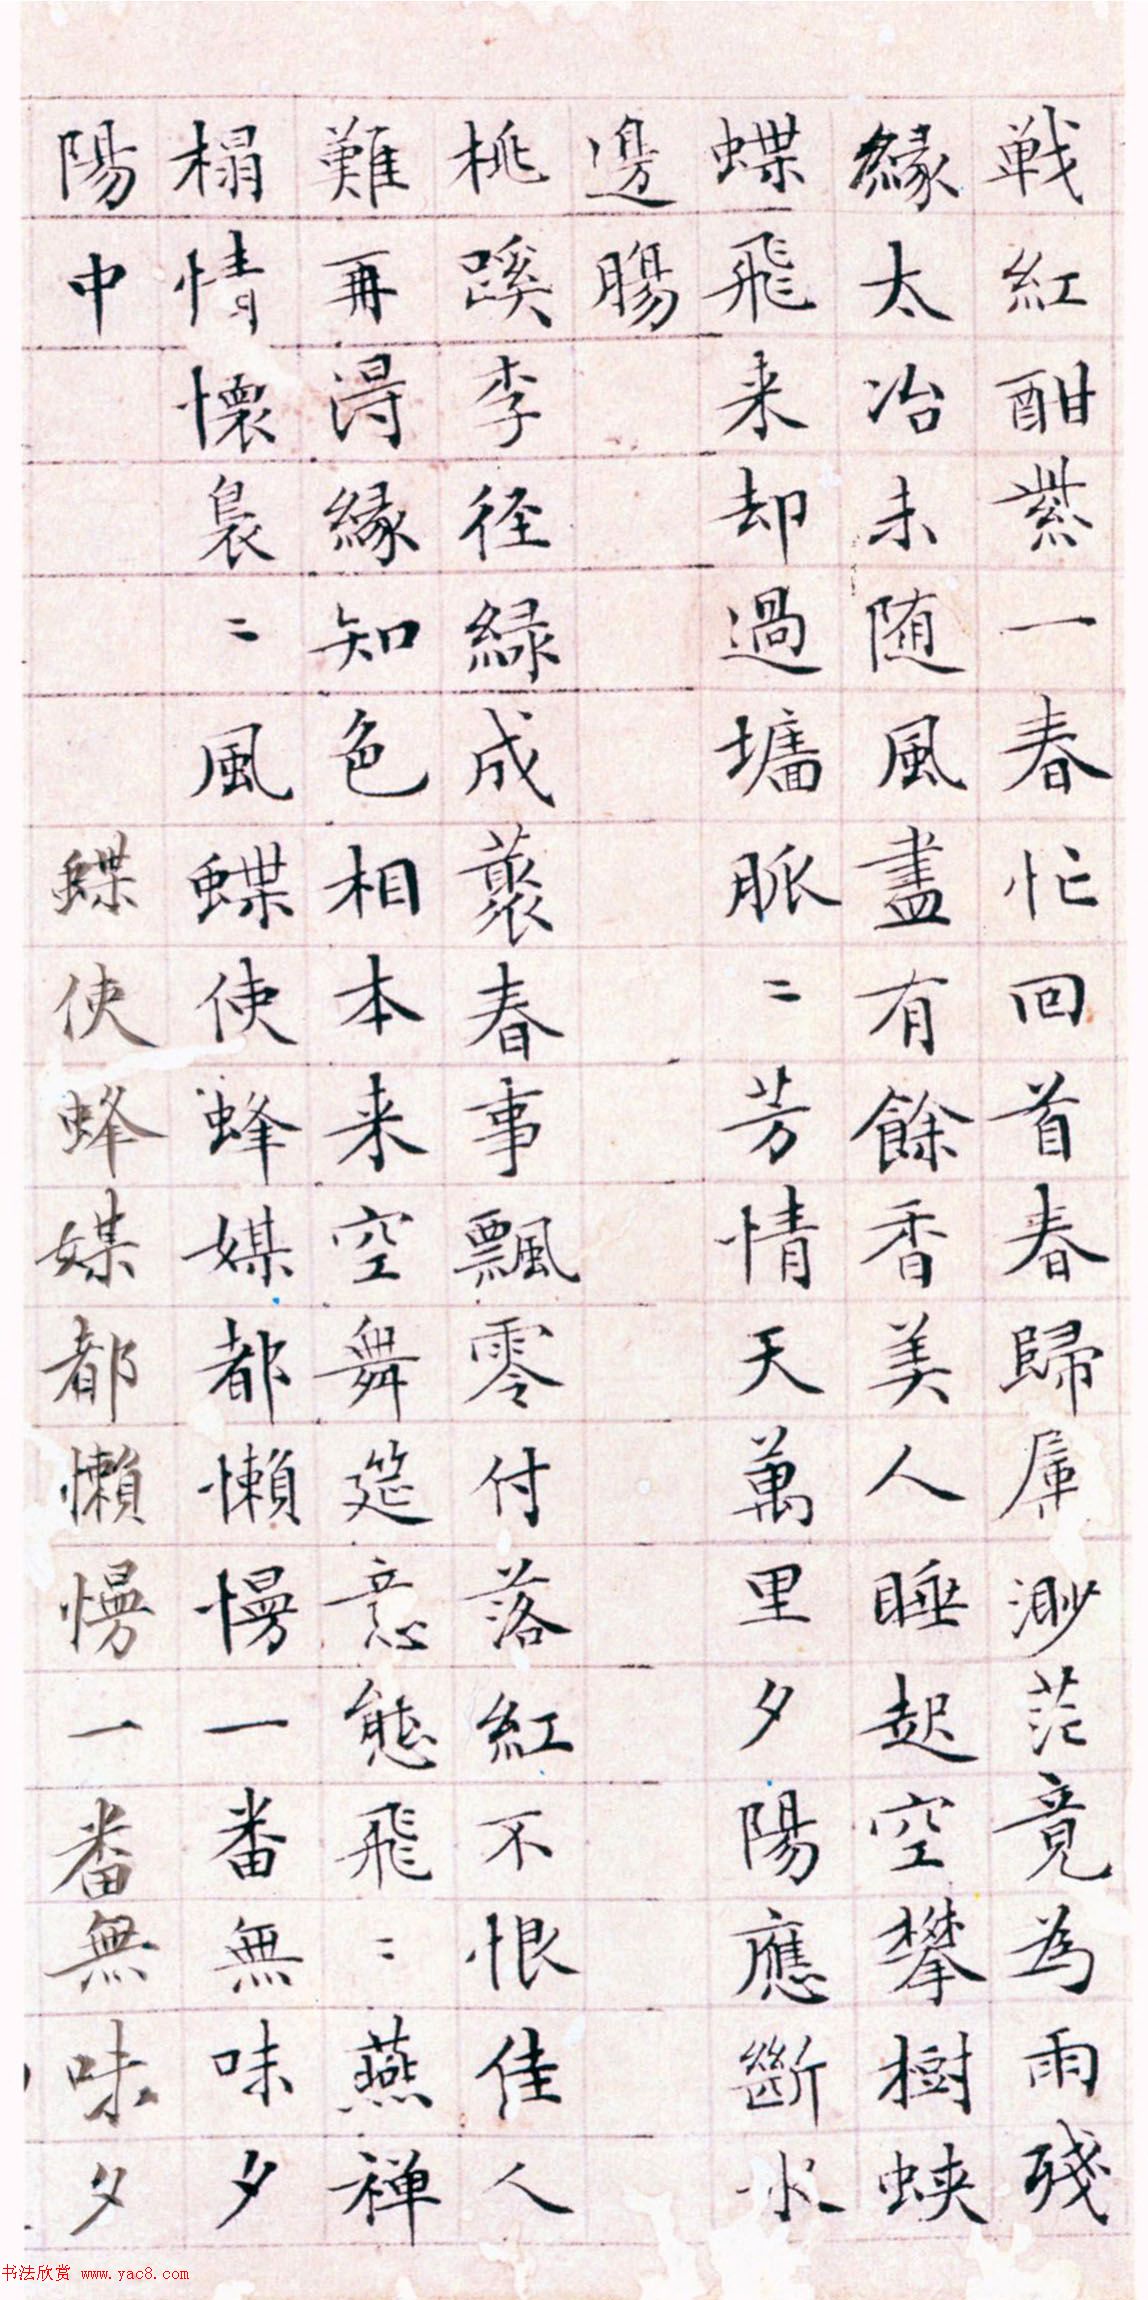 戦紅酣紫一春忙回首春歸屬渺茫竟為雨殘
縁太冶未随風盡有餘香美人睡起空攀樹蛺
蝶飛来却過墻脈〻芳情天萬里夕陽應斷水
邊腸
桃蹊李径緑成叢春事飄零付落紅不恨佳人
難再得縁知色相本来空舞筵意態飛〻燕禅
榻情懷裊〻風蝶使蜂媒都懶慢一番無味夕
陽中蝶使蜂媒都懶慢一番無味夕
书法欣赏 www.yac8.com